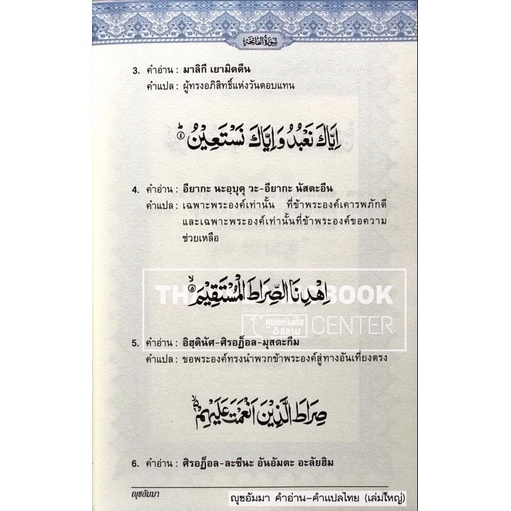 سُوْرَةُ الْفَاتِحَةِ
3. คำอ่าน : มาลิกี เยามิดดีน
คำแปล : ผู้ทรงอภิสิทธิ์แห่งวันตอบแทน
اِيَّاكَ نَعْبُدُ وَاِيَّاكَ نَسْتَعِيْنُ
4. คำอ่าน : อียากะ นะอฺบุดุ วะ-อียากะ นัสตะอีน
คำแปล : เฉพาะพระองค์เท่านั้น ที่ข้าพระองค์เคารพภักดี
และเฉพาะพระองค์เท่านั้นที่ข้าพระองค์ขอความ
ช่วยเหลือ
اِهْدِنَا الصِّرَاطَ الْمُسْتَقِيْمَ
BOOK
ศูนย์หนังสือ
อิสลาม
CENTER
5. คำอ่าน : อิฮฺดินัศ-ศิรอฏ็อล-มุสตะกีม
คำแปล : ขอพระองค์ทรงนำพวกข้าพระองค์สู่ทางอันเที่ยงตรง
صِرَاطَ الَّذِيْنَ اَنْعَمْتَ عَلَيْهِمْ
6. คำอ่าน : ศิรอฏ็อล-ละซีนะ อันอัมตะ อะลัยฮิม
ญุซอัมมา
ญุซอัมมา คำอ่าน-คำแปลไทย (เล่มใหญ่)